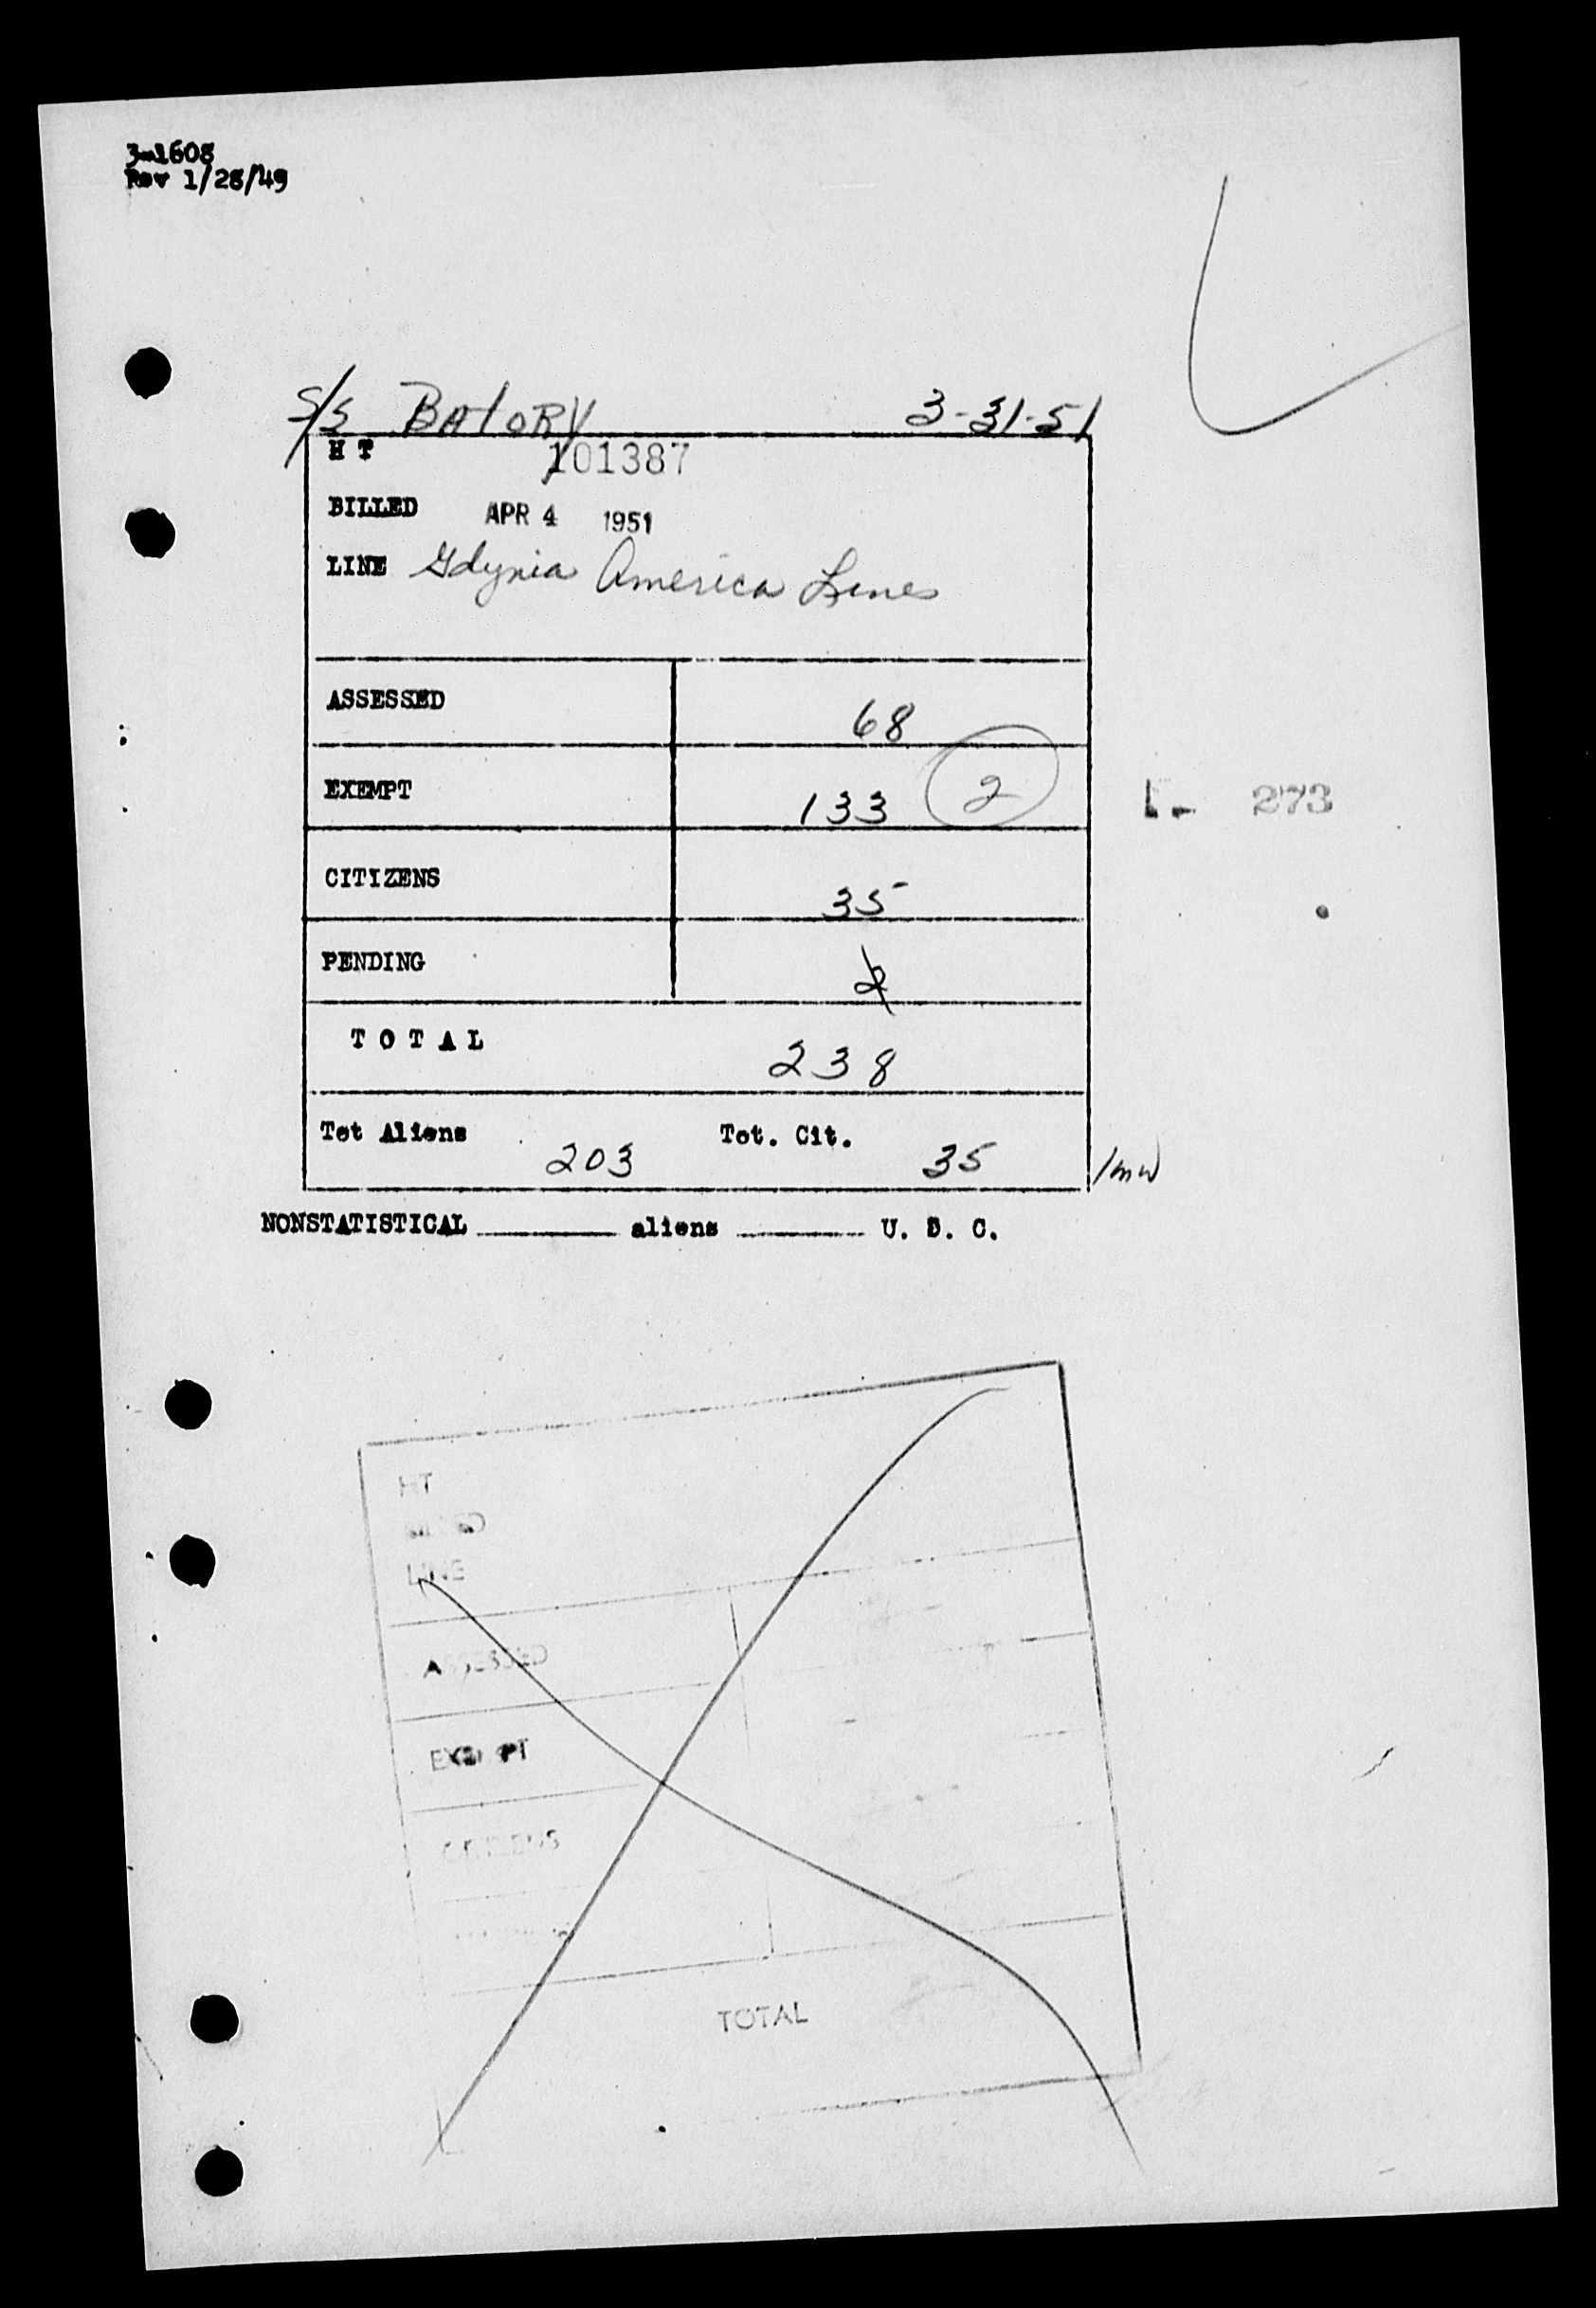 3-1608
Rev 1/28/49
S/S BATORY 3-31-51
H T 101387
BILLED APR 4 1951
LINE Gdynia America Lines
ASSESSED 68
EXEMPT 133 2
CITIZENS 35
PENDING 2
T O T A L 238
Tot Aliens 203 Tot. Cit. 35 /mw
NONSTATISTICAL aliens U. S. C.
273
HT
LINE
ASSESSED
EXEMPT
CITIZENS
TOTAL